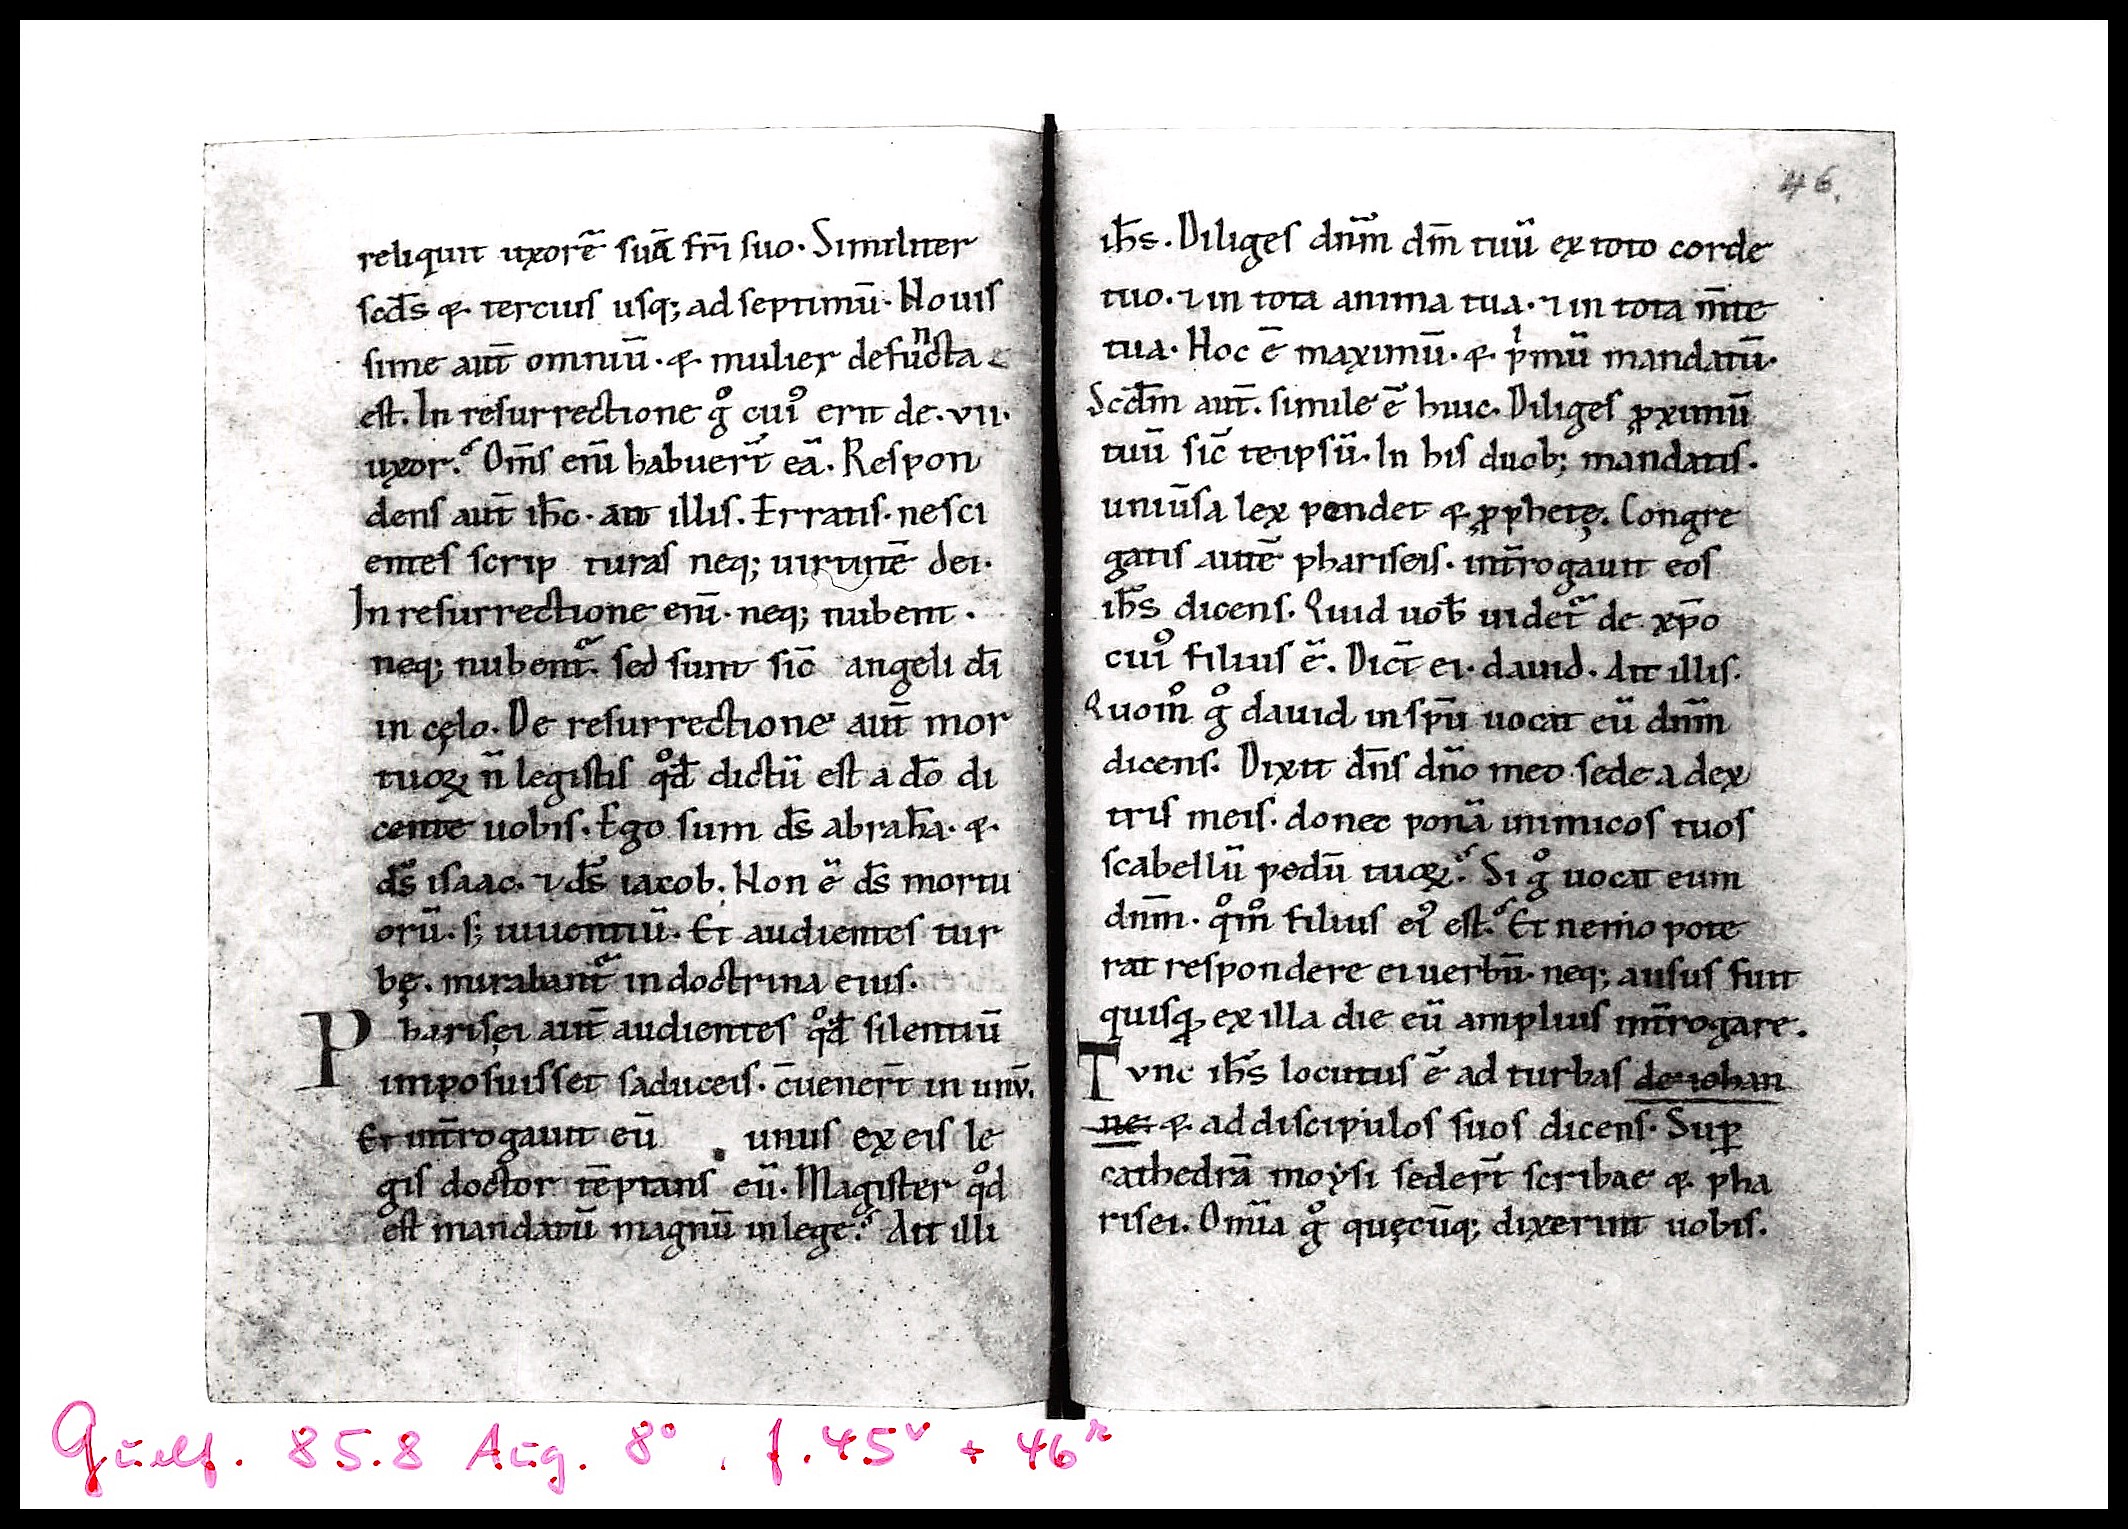 reliquit uxorē suā fri̅ suo. Similiter
scd̅s ⁊ tercius usq; ad septimū. Nouis
sime aut̅ omniū. ⁊ mulier defuⁿcta
est. In resurrectione gͦ cuiꝰ erit de .vii.
uxor? Om̅s eni̅ habuer̅t eā. Respon
dens aut̅ ih̅c. ait illis. Erratis. nesci
entes scrip turas neq; uirtutē dei.
In resurrectione eni̅. neq; nubent.
neq; nubent᷑. sed sunt sic̅ angeli di̅
in cęlo. De resurrectione aut̅ mor
tuoꝝ n̅ legistis qͦd dictū est a do̅ di
cente uobis. Ego sum ds̅ abrah̅a. ⁊
ds̅ isaac. ⁊ ds̅ iacob. Non ē ds̅ mortu
orū. s; uiuentiū. Et audientes tur
bę. mirabant᷑ in doctrina eius.
Pharisęi aut̅ audientes qͦd silentiū
imposuisset saduceis. c̅uener̅t in unv̅.
Et int̅rogauit eū unus ex eis le
gis doctor te̅ptans eū. Magister qͦd
est mandatū magnū in lege? Ait illi
46.
ih̅s. Diliges dn̅m dm̅ tuū ex toto corde
tuo. ⁊ in tota anima tua. ⁊ in tota m̅te
tua. Hoc ē maximū. ⁊ pͥmū mandatū.
Scd̅m aut̅. simile ē huic. Diliges ꝓximū
tuū sic̅ teipsū. In his duob; mandatis.
uniu̅sa lex pendet ⁊ ꝓphetę. Congre
gatis autē phariseis. int̅rogauit eos
ih̅s dicens. Quid uob̅ uidet᷑ de xp̅o
cuiꝰ filius ē. Dic̅t ei. dauid. Ait illis.
Quom̊ gͦ dauid in sp̅u uocat eū dn̅m
dicens. Dixit dn̅s dn̅o meo sede a dex
tris meis. donec ponā inimicos tuos
scabellū pedū tuoꝝ? Si gͦ uocat eum
dn̅m. qͦm̊ filius eiꝰ est? Et nemo pote
rat respondere ei uerbū. neq; ausus fuit
quisqꝫ ex illa die eū amplius int̅rogare.
Tvnc ih̅s locutus ē ad turbas de iohan
ne. ⁊ ad discipulos suos dicens. Suꝑ
cathedrā moẏsi seder̅t scribae ⁊ pha
risei. Om̅ia gͦ quęcu̅q; dixerint uobis.
Guelf. 85.8 Aug. 8°, f. 45ᵛ + 46ʳ